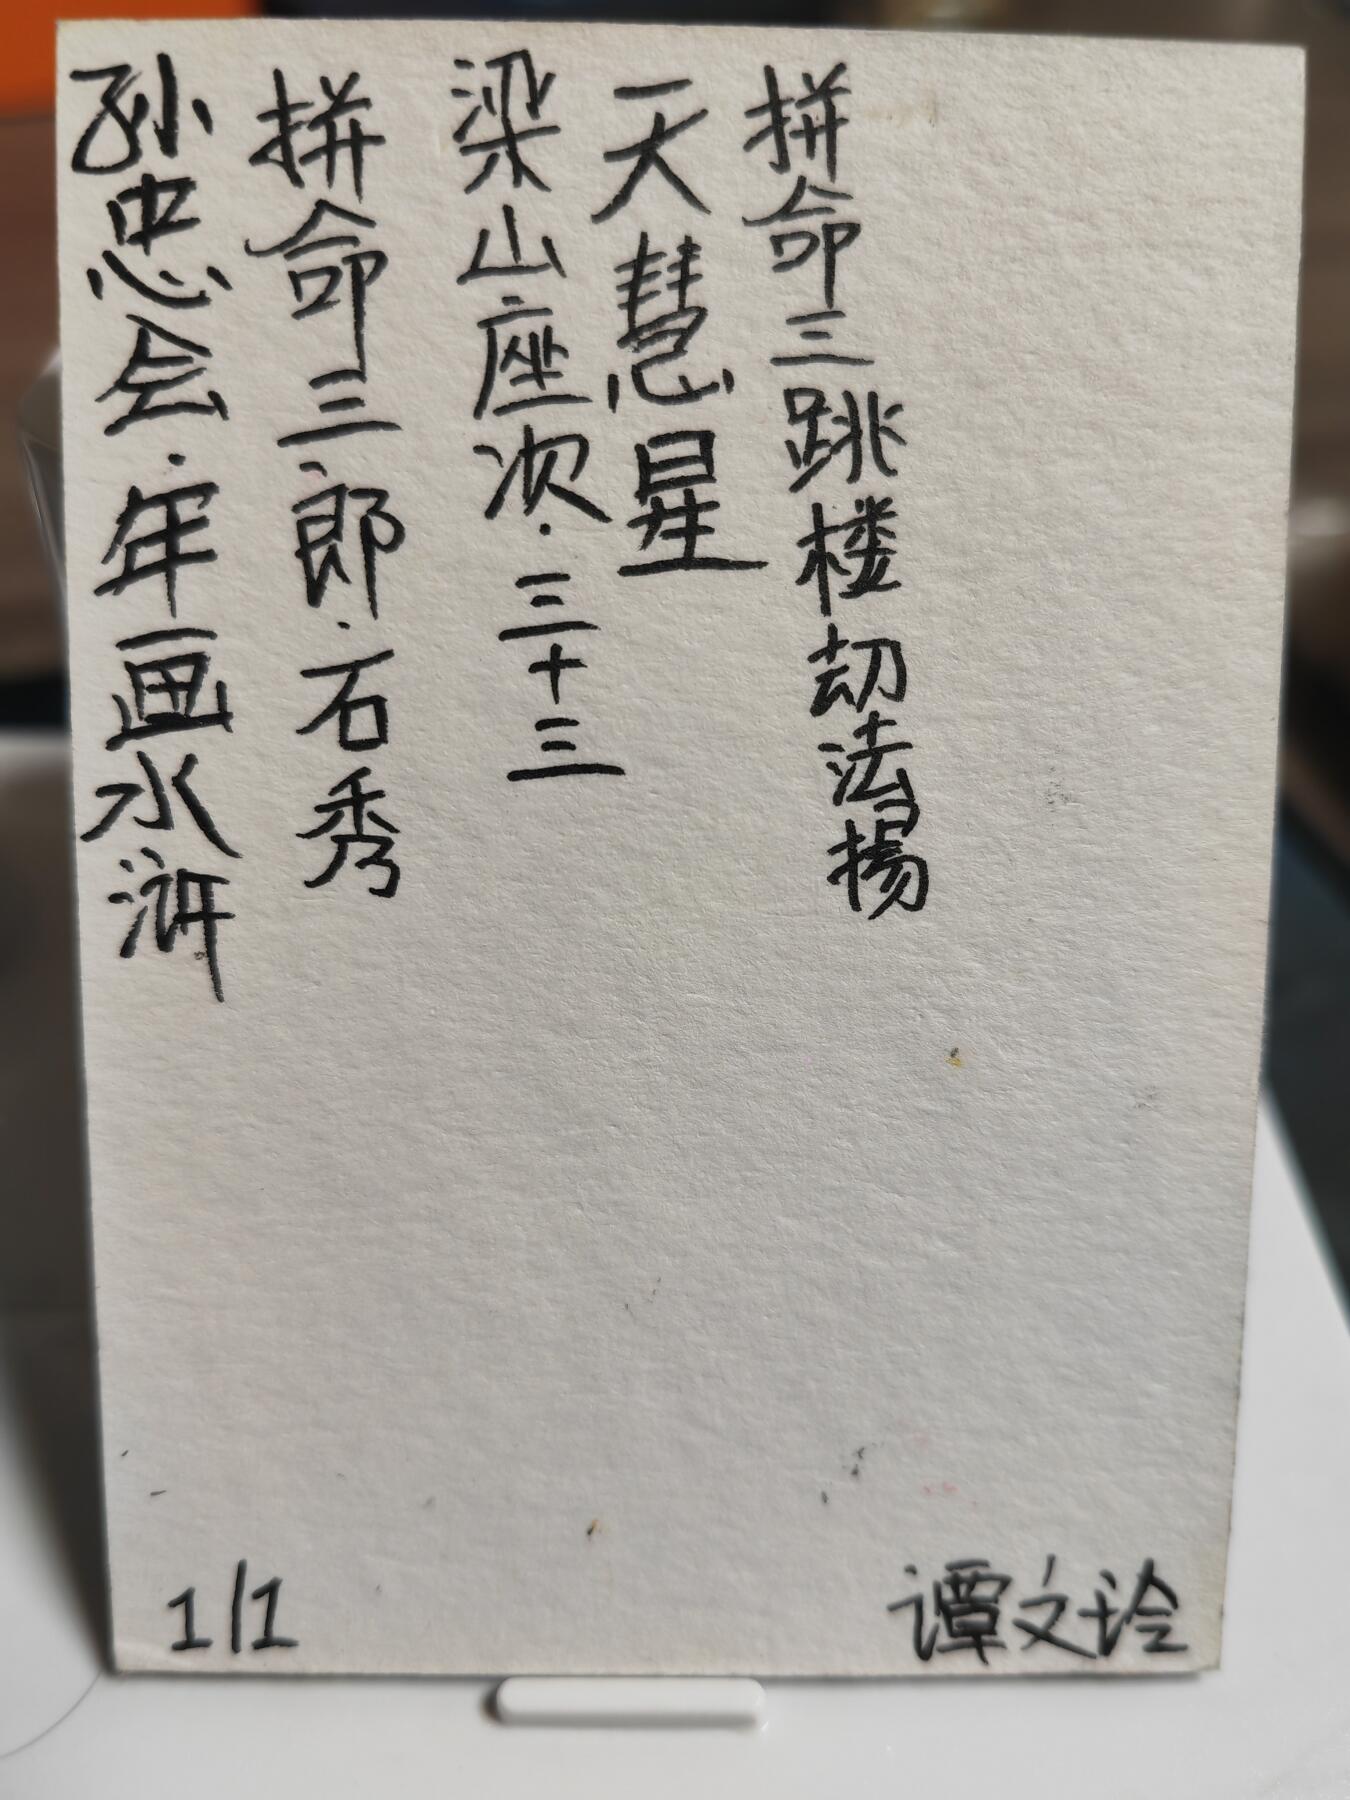 孙忠会·年画水浒
拼命三郎·石秀
梁山座次·三十三
天慧星
拼命三跳楼劫法揚
1/1
谭文玲